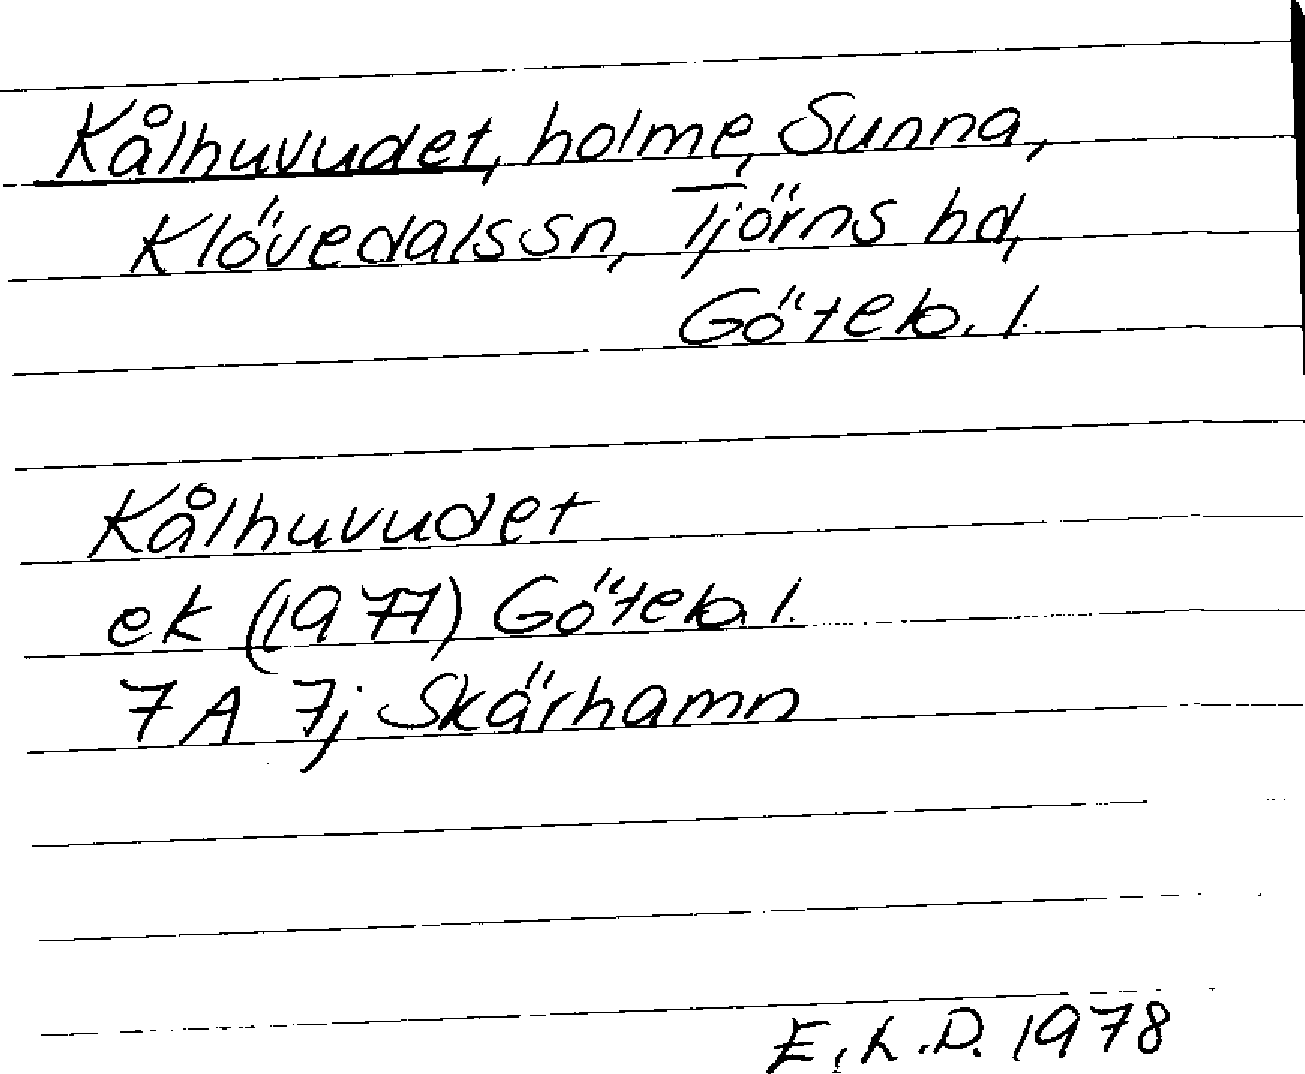 Kålhuvudet, holme, Sunna,
Klövedals sn, Tjörns hd,
Göteb. l.
Kålhuvudet
ek (1977) Göteb. l.
7A 7j Skärhamn
E. L. D. 1978